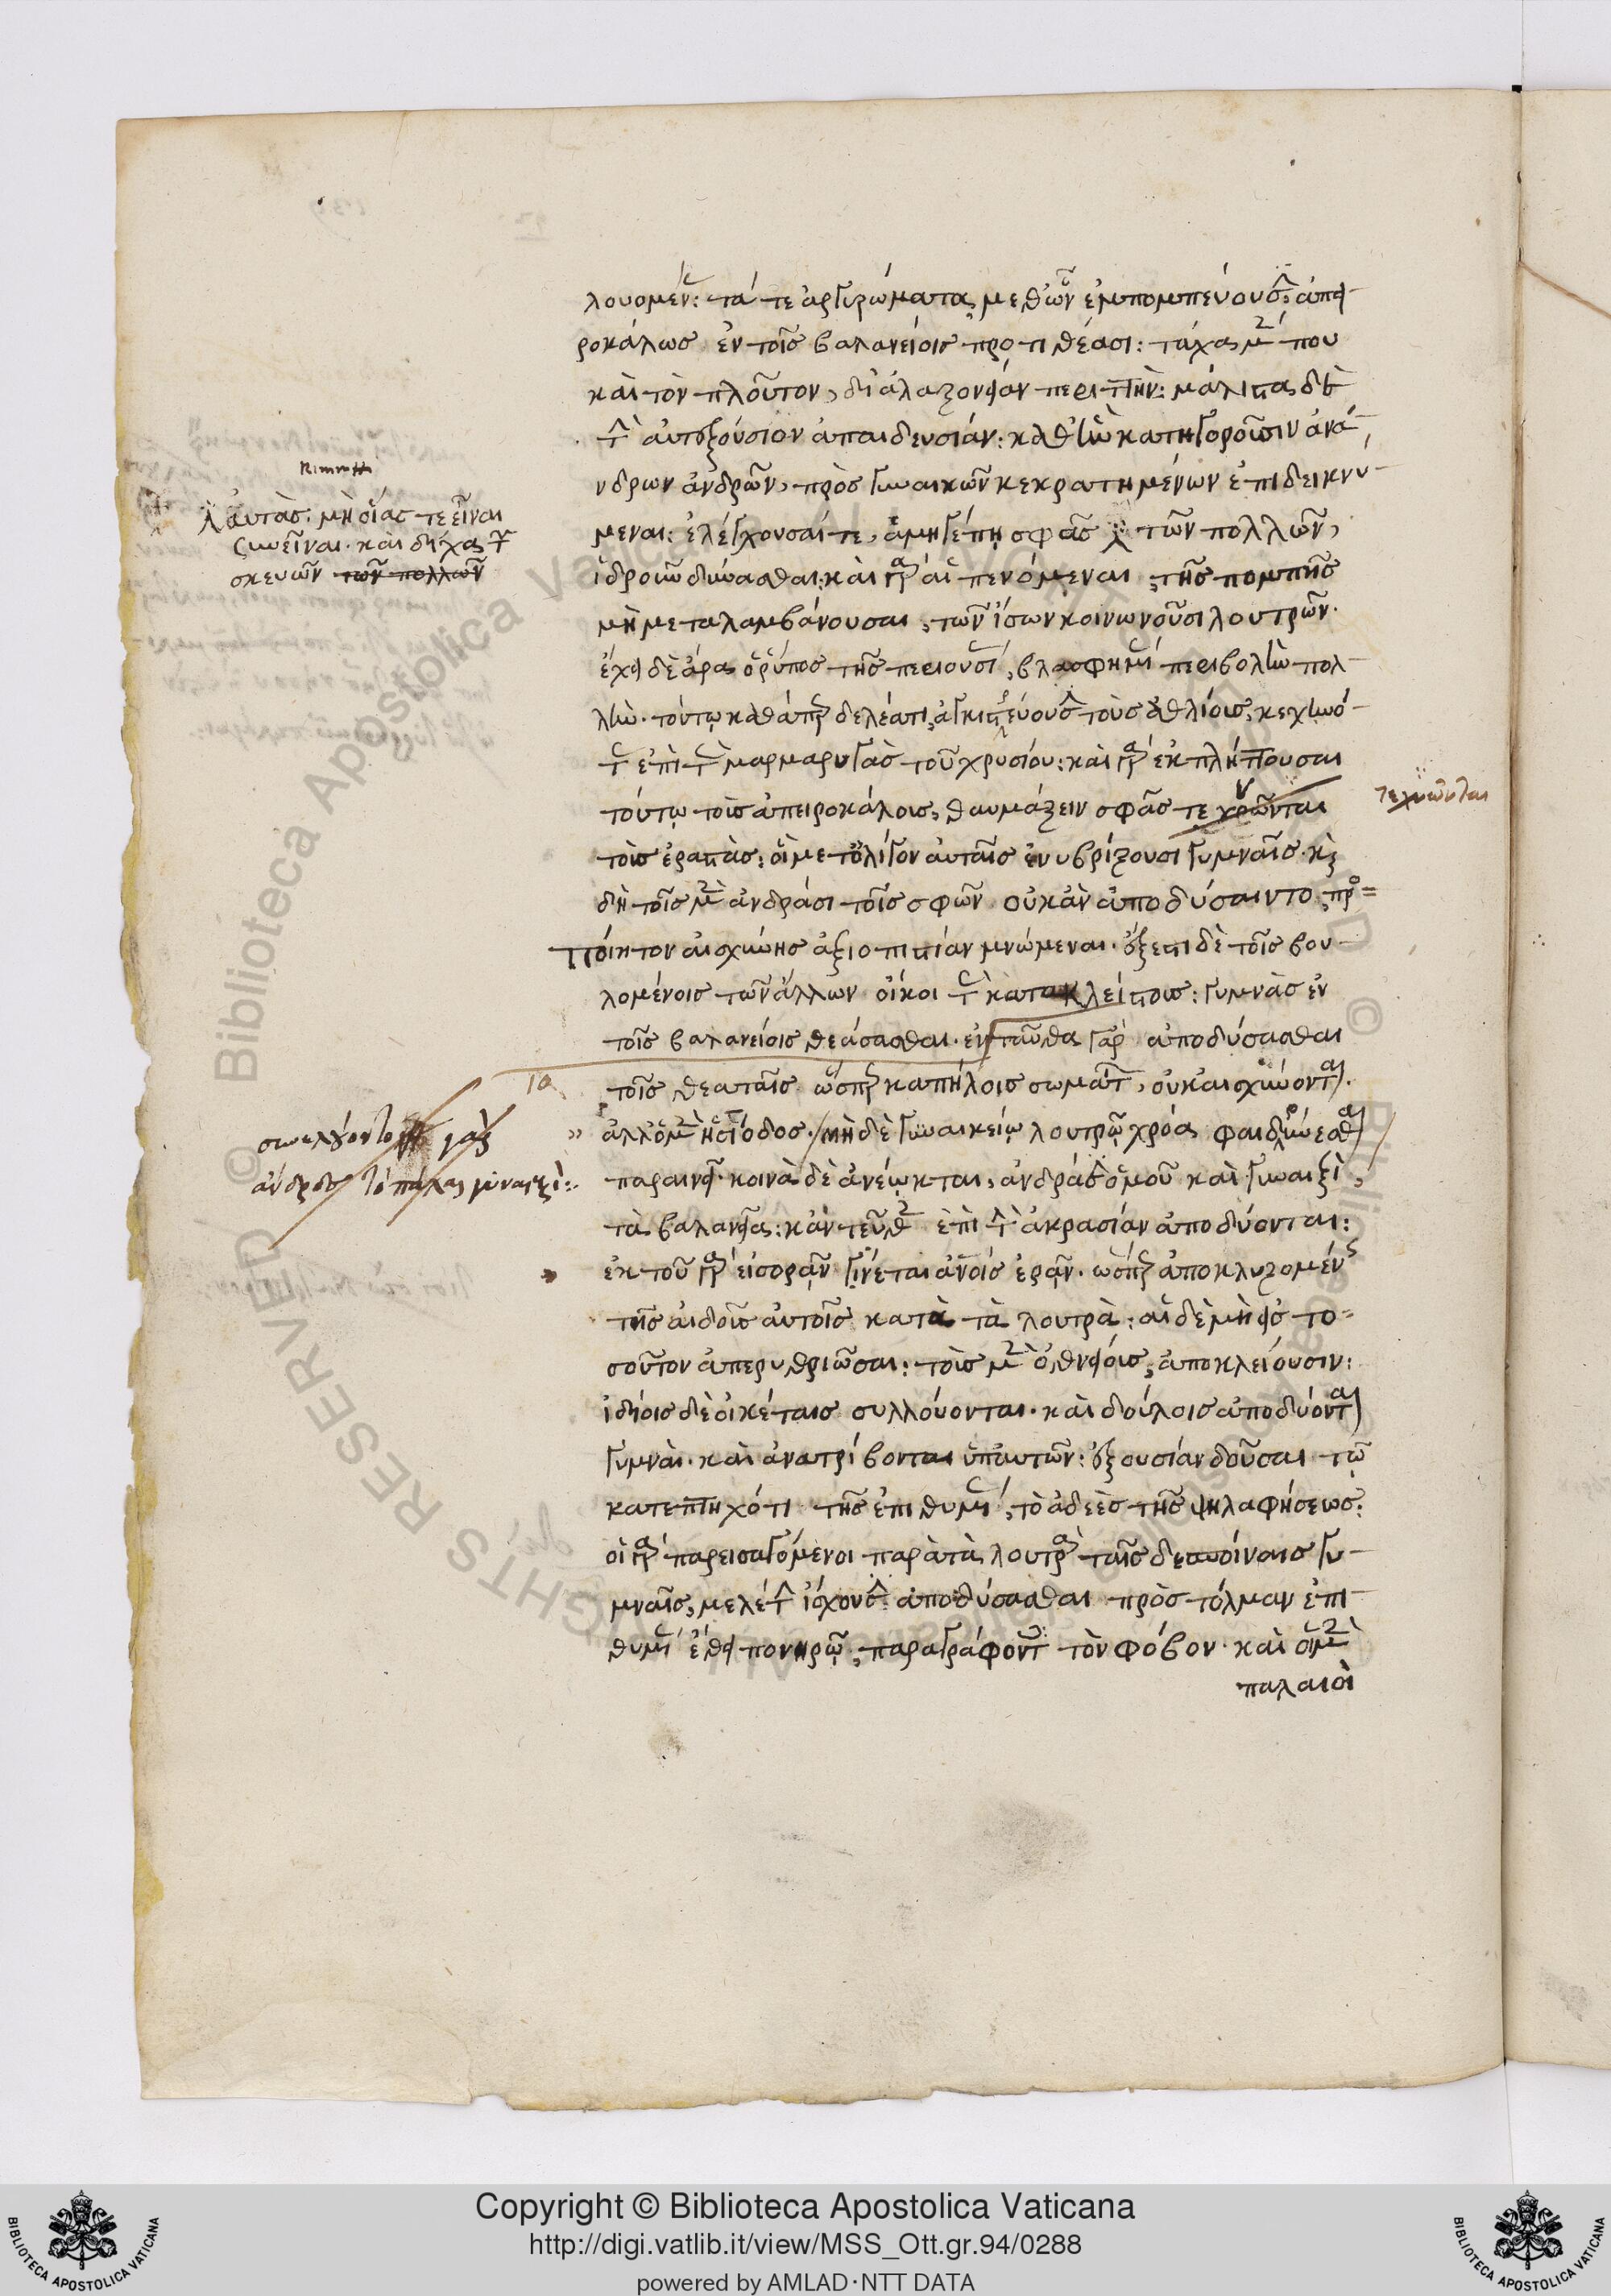 λουομέν: τά τε ἀργυρώματα, μεθ' ὧν ἐμπομπεύουσ: ἀπει-
ροκάλως ἐν τοῖς βαλανείοις προτιθέασι: τάχα μέν που
καὶ τὸν πλοῦτον, δι' ἀλαζονείαν περιττὴν: μάλιστα δὲ
τὴν αὐτεξούσιον ἀπαιδευσίαν: καθ' ἣν κατηγοροῦσιν ἀνά-
νδρων ἀνδρῶν, πρὸς γυναικῶν κεκρατημένων ἐπιδεικνύ-
μεναι: ἐλέγχουσαί τε, ἀμηγέπη σφᾶς των πολλῶν,
ἱδροῦν δύνασθαι: καὶ γὰρ αἱ πενόμεναι, τῆς πομπῆς
μὴ μεταλαμβάνουσαι, τῶν ἴσων κοινωνοῦσι λουτρῶν.
ἔχει δὲ ἄρα ὁ ῥύπος τῆς περιουσί, βλασφημί περιβολὴν πολ-
λὴν. τούτῳ καθάπερ δελέατι, ἀγκιστρεύουσι τοὺς ἀθλίους, κεχηνό-
τας ἐπὶ τὰς μαρμαρυγὰς τοῦ χρυσίου: καὶ γὰρ ἐκπλήττουσαι
τούτῳ τοὺς ἀπειροκάλους, θαυμάζειν σφᾶς τεχνῶνται
τοὺς ἐραστὰς: οἳ μετ' ὀλίγον αὐταῖς ἐνυβρίζουσι γυμναῖς. καὶ
δὴ τοῖς μὲν ἀνδράσι τοῖς σφῶν οὐκ ἂν ἀποδύσαιντο, προσ=
ποίητον αἰσχύνης ἀξιοπιστίαν μνώμεναι. ἔξεστι δὲ τοῖς βου-
λομένοις τῶν ἄλλων οἴκοι τὰς κατακλείστους: γυμνὰς ἐν
τοῖς βαλανείοις θεάσασθαι. ἐνταῦθα γὰρ ἀποδύσασθαι
τοῖς θεαταῖς ὥσπερ καπήλοις σωμάτ, οὐκ αἰσχύνονται.
ἀλλ' ὁ μὲν ἡσίοδος. μὴ δὲ γυναικείῳ λουτρῷ χρόα φαιδρύνεσθαι
παραινεῖ. κοινὰ δὲ ἀνέῳκται, ἀνδράσιν ὁμοῦ καὶ γυναιξὶ,
τὰ βαλανεῖα: κἀντεῦθεν ἐπὶ τὴν ἀκρασίαν ἀποδύονται:
ἐκ τοῦ γὰρ εἰσορᾷν γίνεται ἀνοις ἐρᾷν. ὥσπερ ἀποκλυζομένης
τῆς αἰδοῦς αὐτοῖς κατὰ τὰ λουτρὰ: αἱ δὲ μὴ εἰς το=
σοῦτον ἀπερυθριῶσαι: τοὺς μὲν ὀθνείους, ἀποκλείουσιν:
ἰδίοις δὲ οἰκέταις συλλούονται. καὶ δούλοις ἀποδύονται
γυμναὶ. καὶ ἀνατρίβονται ὑπ' αὐτῶν: ἐξουσίαν δοῦσαι τῷ
κατεπτηχότι τῆς ἐπιθυμί, τὸ ἀδεὲς τῆς ψηλαφήσεως:
οἱ γὰρ παρεισαγόμενοι παρὰ τὰ λουτρὰ ταῖς δεσποίναις γυ-
μναῖς, μελέτην ἴσχουσιν ἀποδύσασθαι πρὸς τόλμαν ἐπι-
θυμί ἔθει πονηρῷ, παραγράφοντες τὸν φόβον. καὶ οἱ μὲν
παλαιοὶ
αὐτὰς: μὴ οἵας τε εἶναι
συνεῖναι. καὶ δίχα τ
σκευῶν τῶν πολλῶν
τεχνῶνται
συνελγοντο γὰρ
ἀνδρὸς τὸ πάλαι γυναιξὶ::
Copyright © Biblioteca Apostolica Vaticana
http://digi.vatlib.it/view/MSS_Ott.gr.94/0288
powered by AMLAD·NTT DATA
BIBLIOTECA APOSTOLICA VATICANA
BIBLIOTECA APOSTOLICA VATICANA